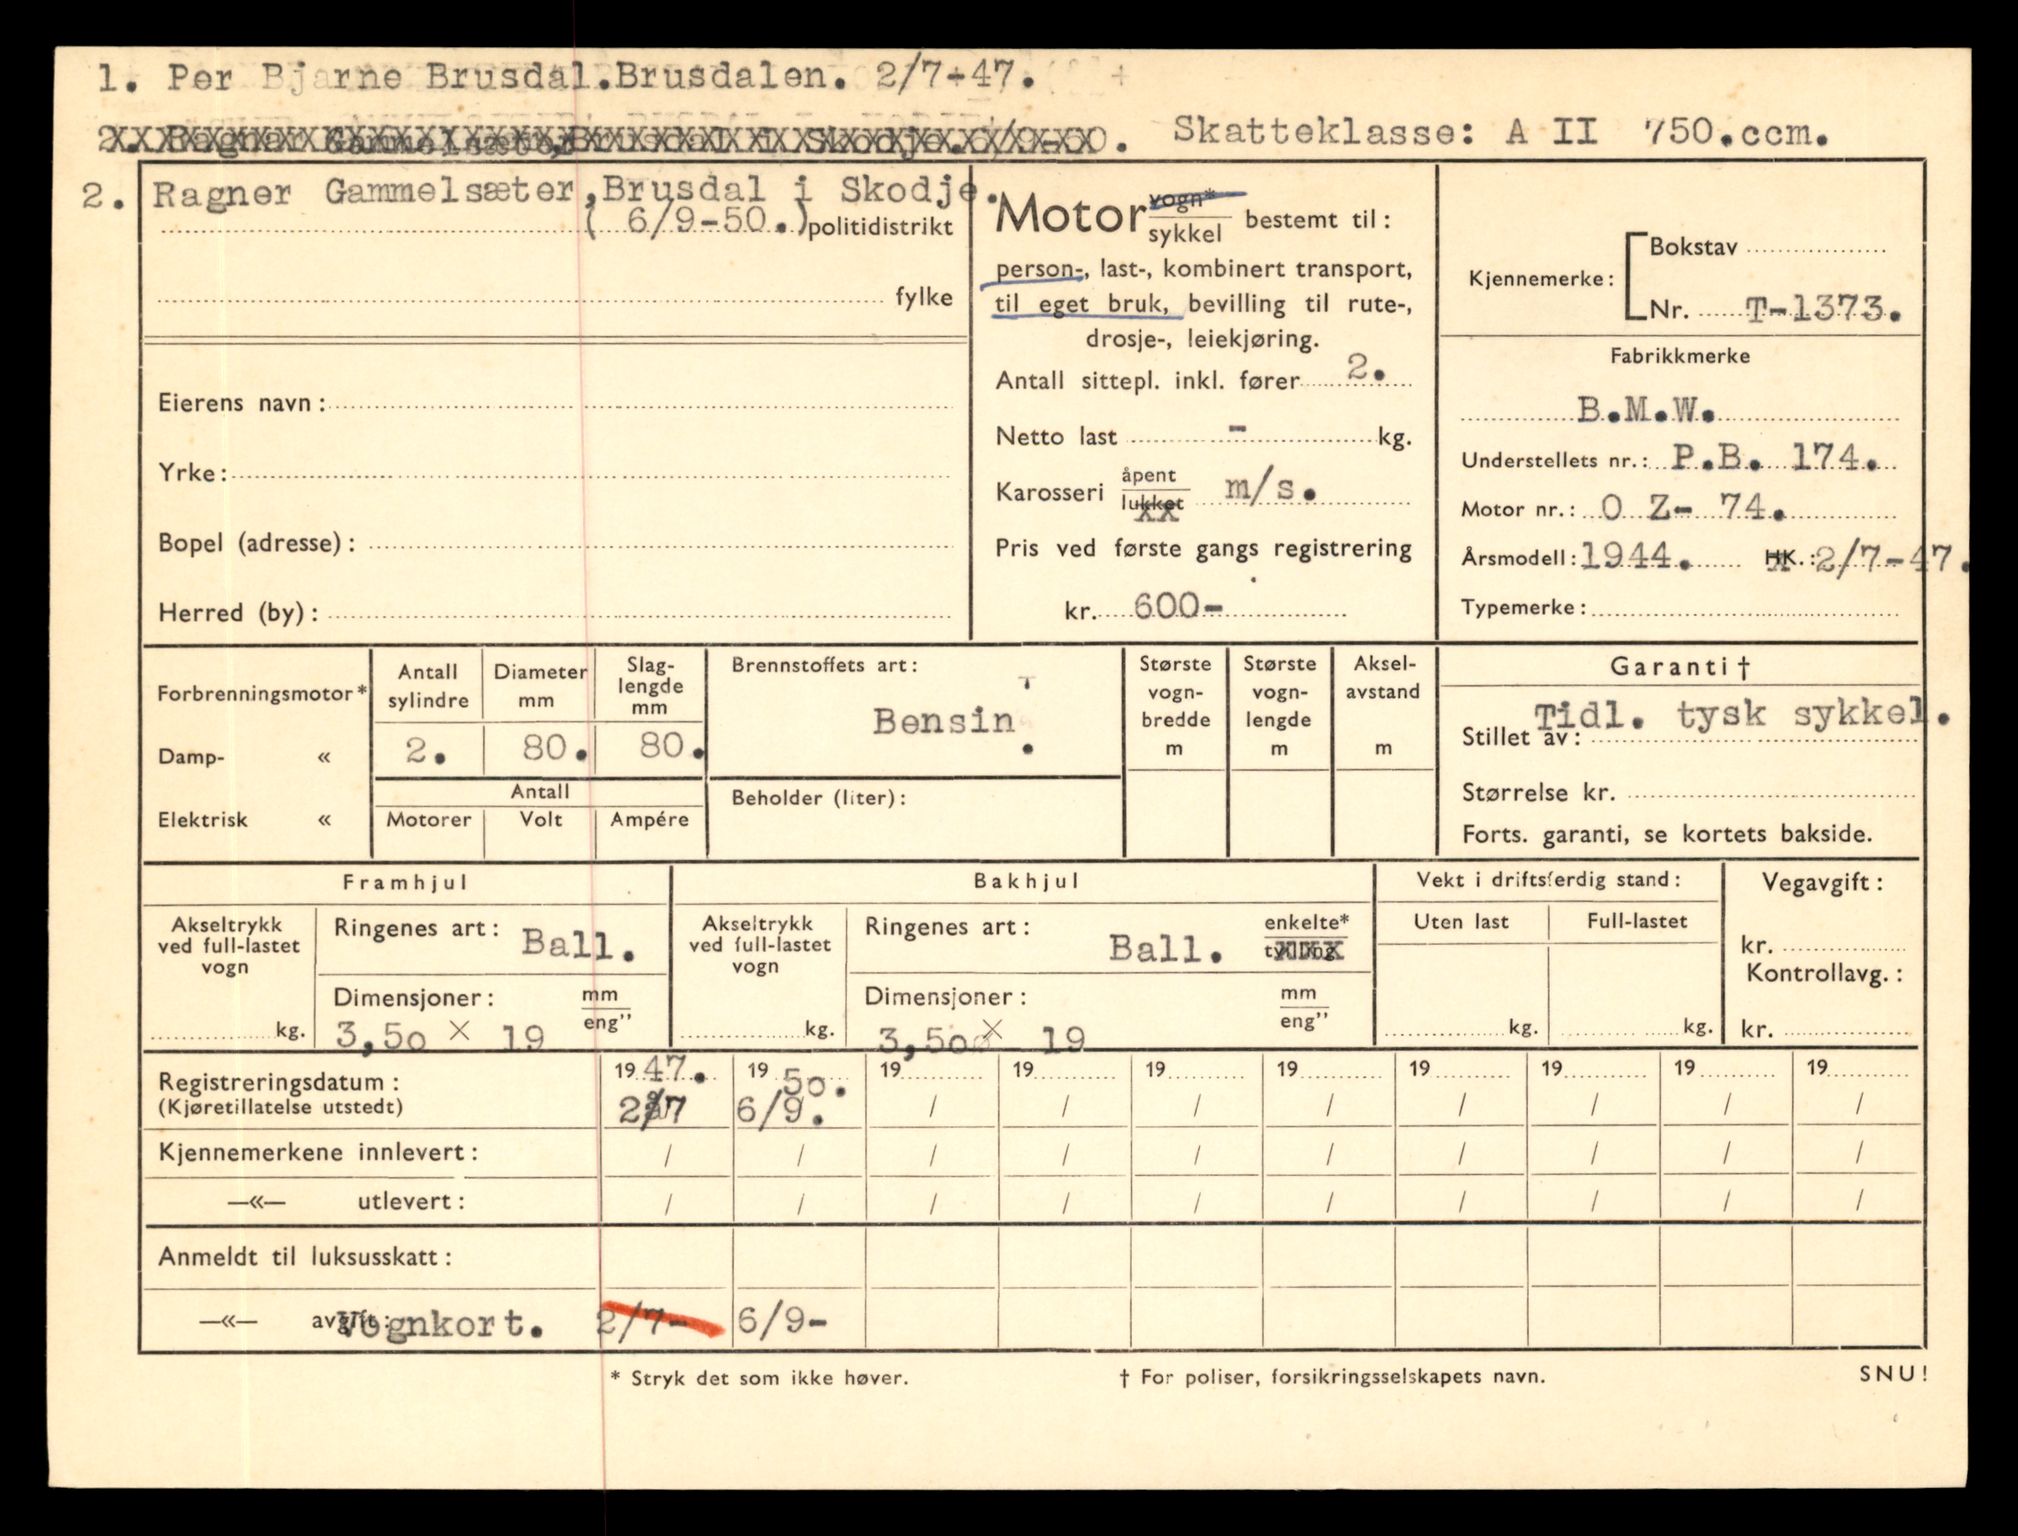 1. Per Bjarne Brusdal.Brusdalen. 2/7-47.
2. Ragnar Gammelsæter,Brusdal i Skodje. 6/9-50. Skatteklasse: A II 750.ccm.
2. Ragner Gammelsæter,Brusdal i Skodje.
( 6/9-50.) politidistrikt
fylke
Eierens navn:
Yrke:
Bopel (adresse):
Herred (by):
Motor vogn* / sykkel bestemt til:
person-, last-, kombinert transport,
til eget bruk, bevilling til rute-,
drosje-, leiekjøring.
Antall sittepl. inkl. fører 2.
Netto last - kg.
Karosseri åpent / lukket m/s.
Pris ved første gangs registrering
kr. 600-
Kjennemerke: Bokstav
Nr. T-1373.
Fabrikkmerke
B.M.W.
Understellets nr.: P.B. 174.
Motor nr.: O Z- 74.
Årsmodell: 1944. HK.: 2/7-47.
Typemerke:
Forbrenningsmotor*
Damp- «
Elektrisk «
Antall sylindre
Diameter mm
Slag-lengde mm
2. 80. 80.
Antall
Motorer Volt Ampére
Brennstoffets art:
Bensin.
Beholder (liter):
Største vogn-bredde m
Største vogn-lengde m
Aksel-avstand m
Garanti †
Tidl. tysk sykkel.
Stillet av:
Størrelse kr.
Forts. garanti, se kortets bakside.
Framhjul
Akseltrykk ved full-lastet vogn
kg.
Ringenes art: Ball.
Dimensjoner: mm / eng”
3,50 × 19
Bakhjul
Akseltrykk ved full-lastet vogn
kg.
Ringenes art: Ball. enkelte* / tvilling
Dimensjoner: mm / eng”
3,50 × 19
Vekt i driftsferdig stand:
Uten last Full-lastet
kg. kg.
Vegavgift:
kr.
Kontrollavg.:
kr.
Registreringsdatum: 1947. 1950. 19 19 19 19 19 19 19 19
(Kjøretillatelse utstedt) 2/7 6/9. / / / / / / / /
Kjennemerkene innlevert: / / / / / / / / / /
—«— utlevert: / / / / / / / / / /
Anmeldt til luksusskatt:
—«— avgift: Vognkort. 2/7- 6/9-
* Stryk det som ikke høver. † For poliser, forsikringsselskapets navn. SNU!